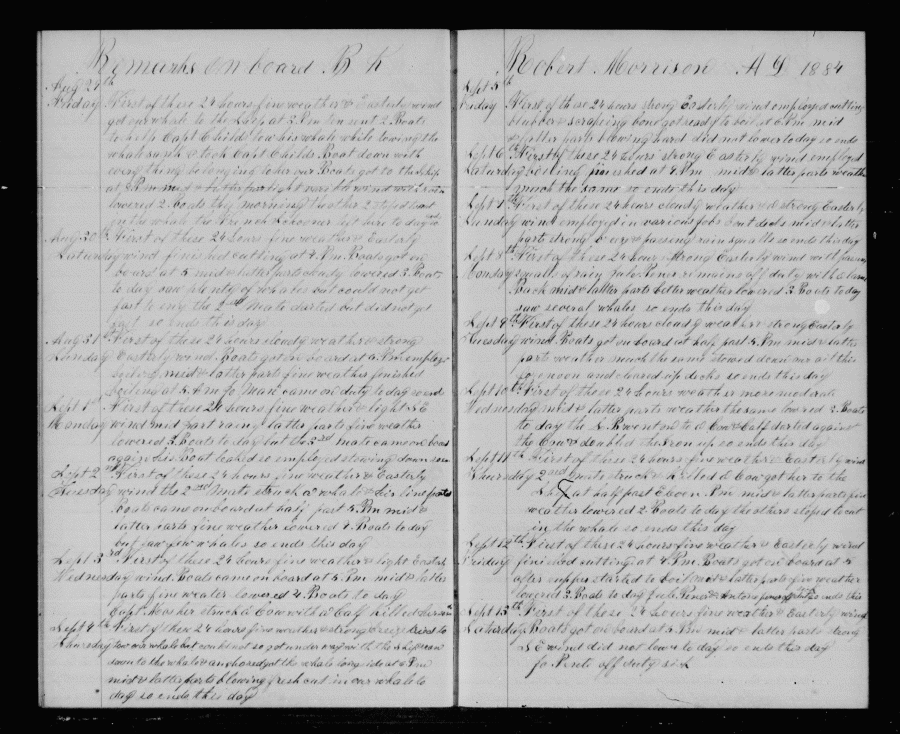 Remarks on board B K
Aug 29th
Friday First of these 24 hours fine weather & Easterly wind
got our whale to the Ship at 3 Pm then sent 2 Boats
to help Capt Childs tow his whale while towing the
whale sunk & took Capt Childs Boat down with
everything belonging to her our Boats got to the Ship
at Pm mid & latter part light weather
lowered 2 Boats this morning the other 2 stoped to cut
in the whale the French Schooner left here to day
Aug 30th First of these 24 hours fine weather & Easterly
Saturday wind finished cutting at 4 Pm Boats got on
board at 5 mid & latter parts cloudy lowered 3 Boats
to day saw plenty of whales but could not get
fast to eny the 2nd Mate darted but did not get
fast so ends this day
Aug 31st First of these 24 hours cloudy weather & strong
Sunday Easterly wind Boats got on board at 4 Pm employed
mid & latter parts fine weather finished
boiling at 5 Am Man came on duty to day so ends
Sept 1st First of these 24 hours fine weather & light SE
Monday wind mid part rainy latter parts fine weather
lowered 3 Boats to day but the 3rd mate came on board
again his Boat leaked so employed stowing down
Sept 2nd First of these 24 hours fine weather & Easterly
Tuesday wind the 2nd Mate struck a whale & his line parted
Boats came on board at half past 4 Pm mid &
latter parts fine weather lowered 4 Boats to day
but saw few whales so ends this day
Sept 3rd First of these 24 hours fine weather & light Easterly
Wednesday wind Boats came on board at 5 Pm mid & latter
parts fine weather lowered 4 Boats to day
Capt Mosher struck a Cow with a Calf killed her
Sept 4th First of these 24 hours fine weather & strong breeze tried to
Thursday tow our whale but could not so got under way with the Ship ran
down to the whale & anchored got the whale long side at Pm
mid & latter parts blowing fresh cut in our whale to
day so ends this day
Robert Morrison A D 1884
Sept 5th
Friday First of these 24 hours strong Easterly wind employed cutting
blubber & scraping bone got ready to boil at 6 Pm mid
& latter parts blowing hard did not lower to day so ends
Sept 6th First of these 24 hours strong Easterly wind employed
Saturday boiling finished at 4 Pm mid & latter parts weather
much the same so ends this day
Sept 7th First of these 24 hours cloudy weather & strong Easterly
Sunday wind employed in various jobs but decks mid & latter
parts strong & passing rain squalls so ends this day
Sept 8th First of these 24 hours strong Easterly wind with passing
Monday squalls of rain remains off duty with a lame
Back mid & latter parts better weather lowered 3 Boats to day
saw several whales so ends this day
Sept 9th First of these 24 hours cloudy weather & strong Easterly
Tuesday wind Boats got on board at half past 4 Pm mid & latter
parts weather much the same stowed down our oil this
forenoon and cleared up decks so ends this day
Sept 10th First of these 24 hours weather more moderate
Wednesday mid & latter parts weather the same lowered 3 Boats
to day the S B went on to a Cow & Calf darted against
the Cow & doubled the Iron up so ends this day
Sept 11th First of these 24 hours fine weather & Easterly wind
Thursday 2nd Mate struck & killed a Cow got her to the
Ship at half past Eleven Pm mid & latter parts fine
weather lowered 2 Boats to day the others stoped to cut
in the whale so ends this day
Sept 12th First of these 24 hours fine weather & Easterly wind
Friday finished cutting at 4 Pm Boats got on board at 5
after supper started to boil mid & latter parts fine weather
lowered 3 Boats to day & Antone off duty so ends this day
Sept 13th First of these 24 hours fine weather & Easterly wind
Saturday Boats got on board at 5 Pm mid & latter parts strong
S E wind did not lower to day so ends this day
off duty sick